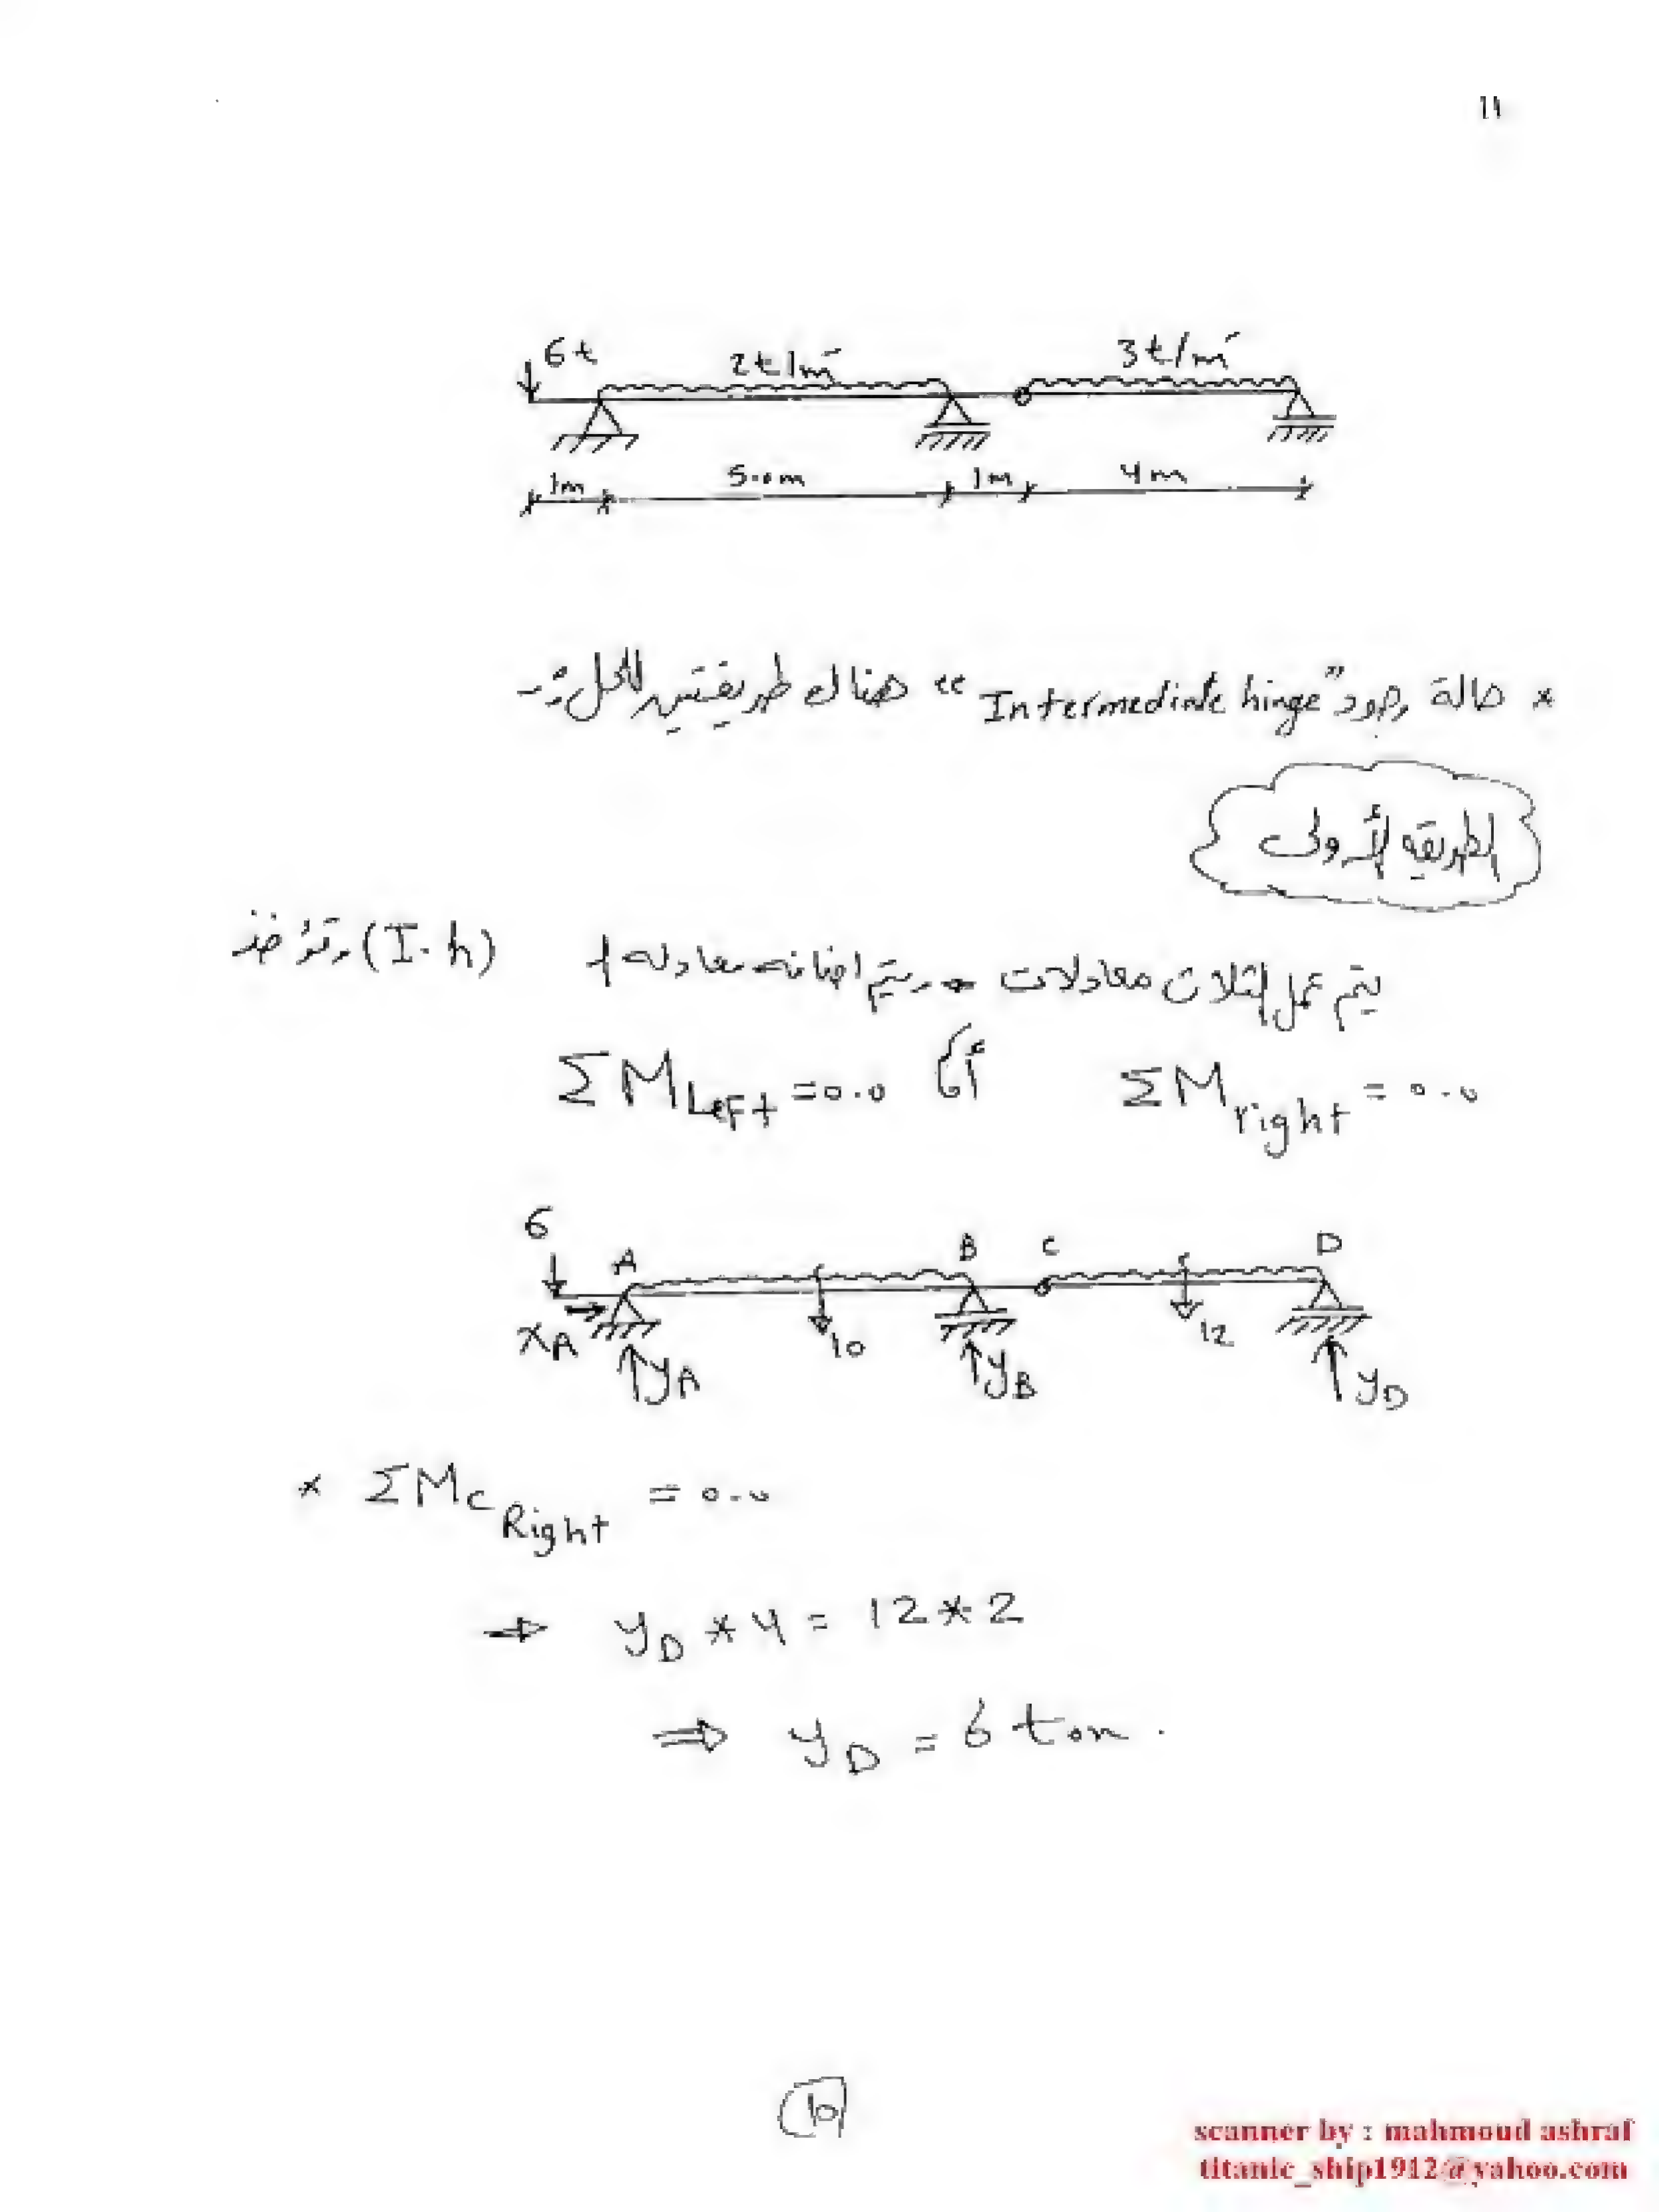 11
6t 2t/m' 3t/m'
1m 5.0m 1m 4m
* حالة وجود "Intermediate hinge" هناك طريقتين للحل :-
الطريقه الأولى
يتم عمل الثلاث معادلات ويتم اضافه معادله (I.h) وتؤخذ
ΣM right = 0.0 أو ΣM Left = 0.0
6 A B C D
XA YA 10 YB 12 YD
* ΣMC Right = 0.0
⇒ YD * 4 = 12 * 2
⇒ YD = 6 ton.
10
scanner by : mahmoud ashraf
titanic_ship1912@yahoo.com